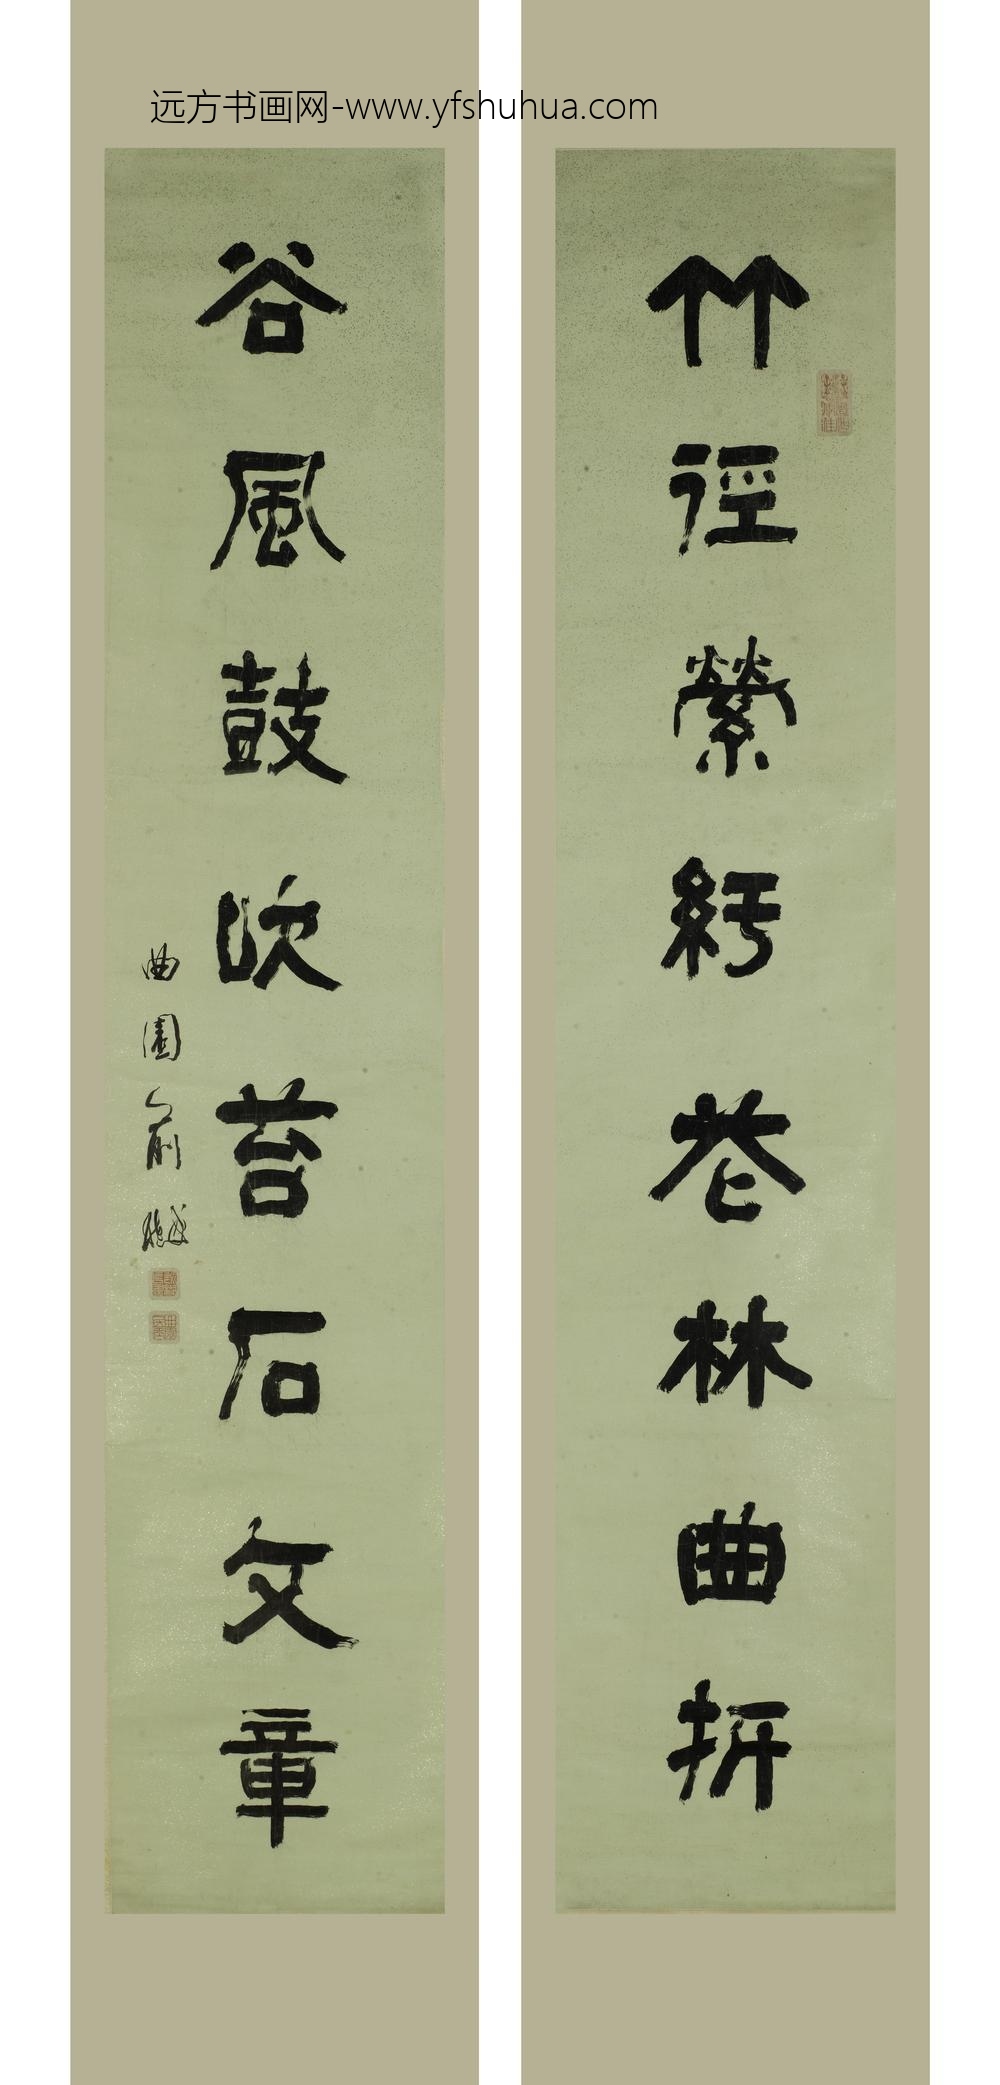 远方书画网-www.yfshuhua.com
竹徑縈紆花林曲折
谷風鼓吹苔石文章
曲園俞樾